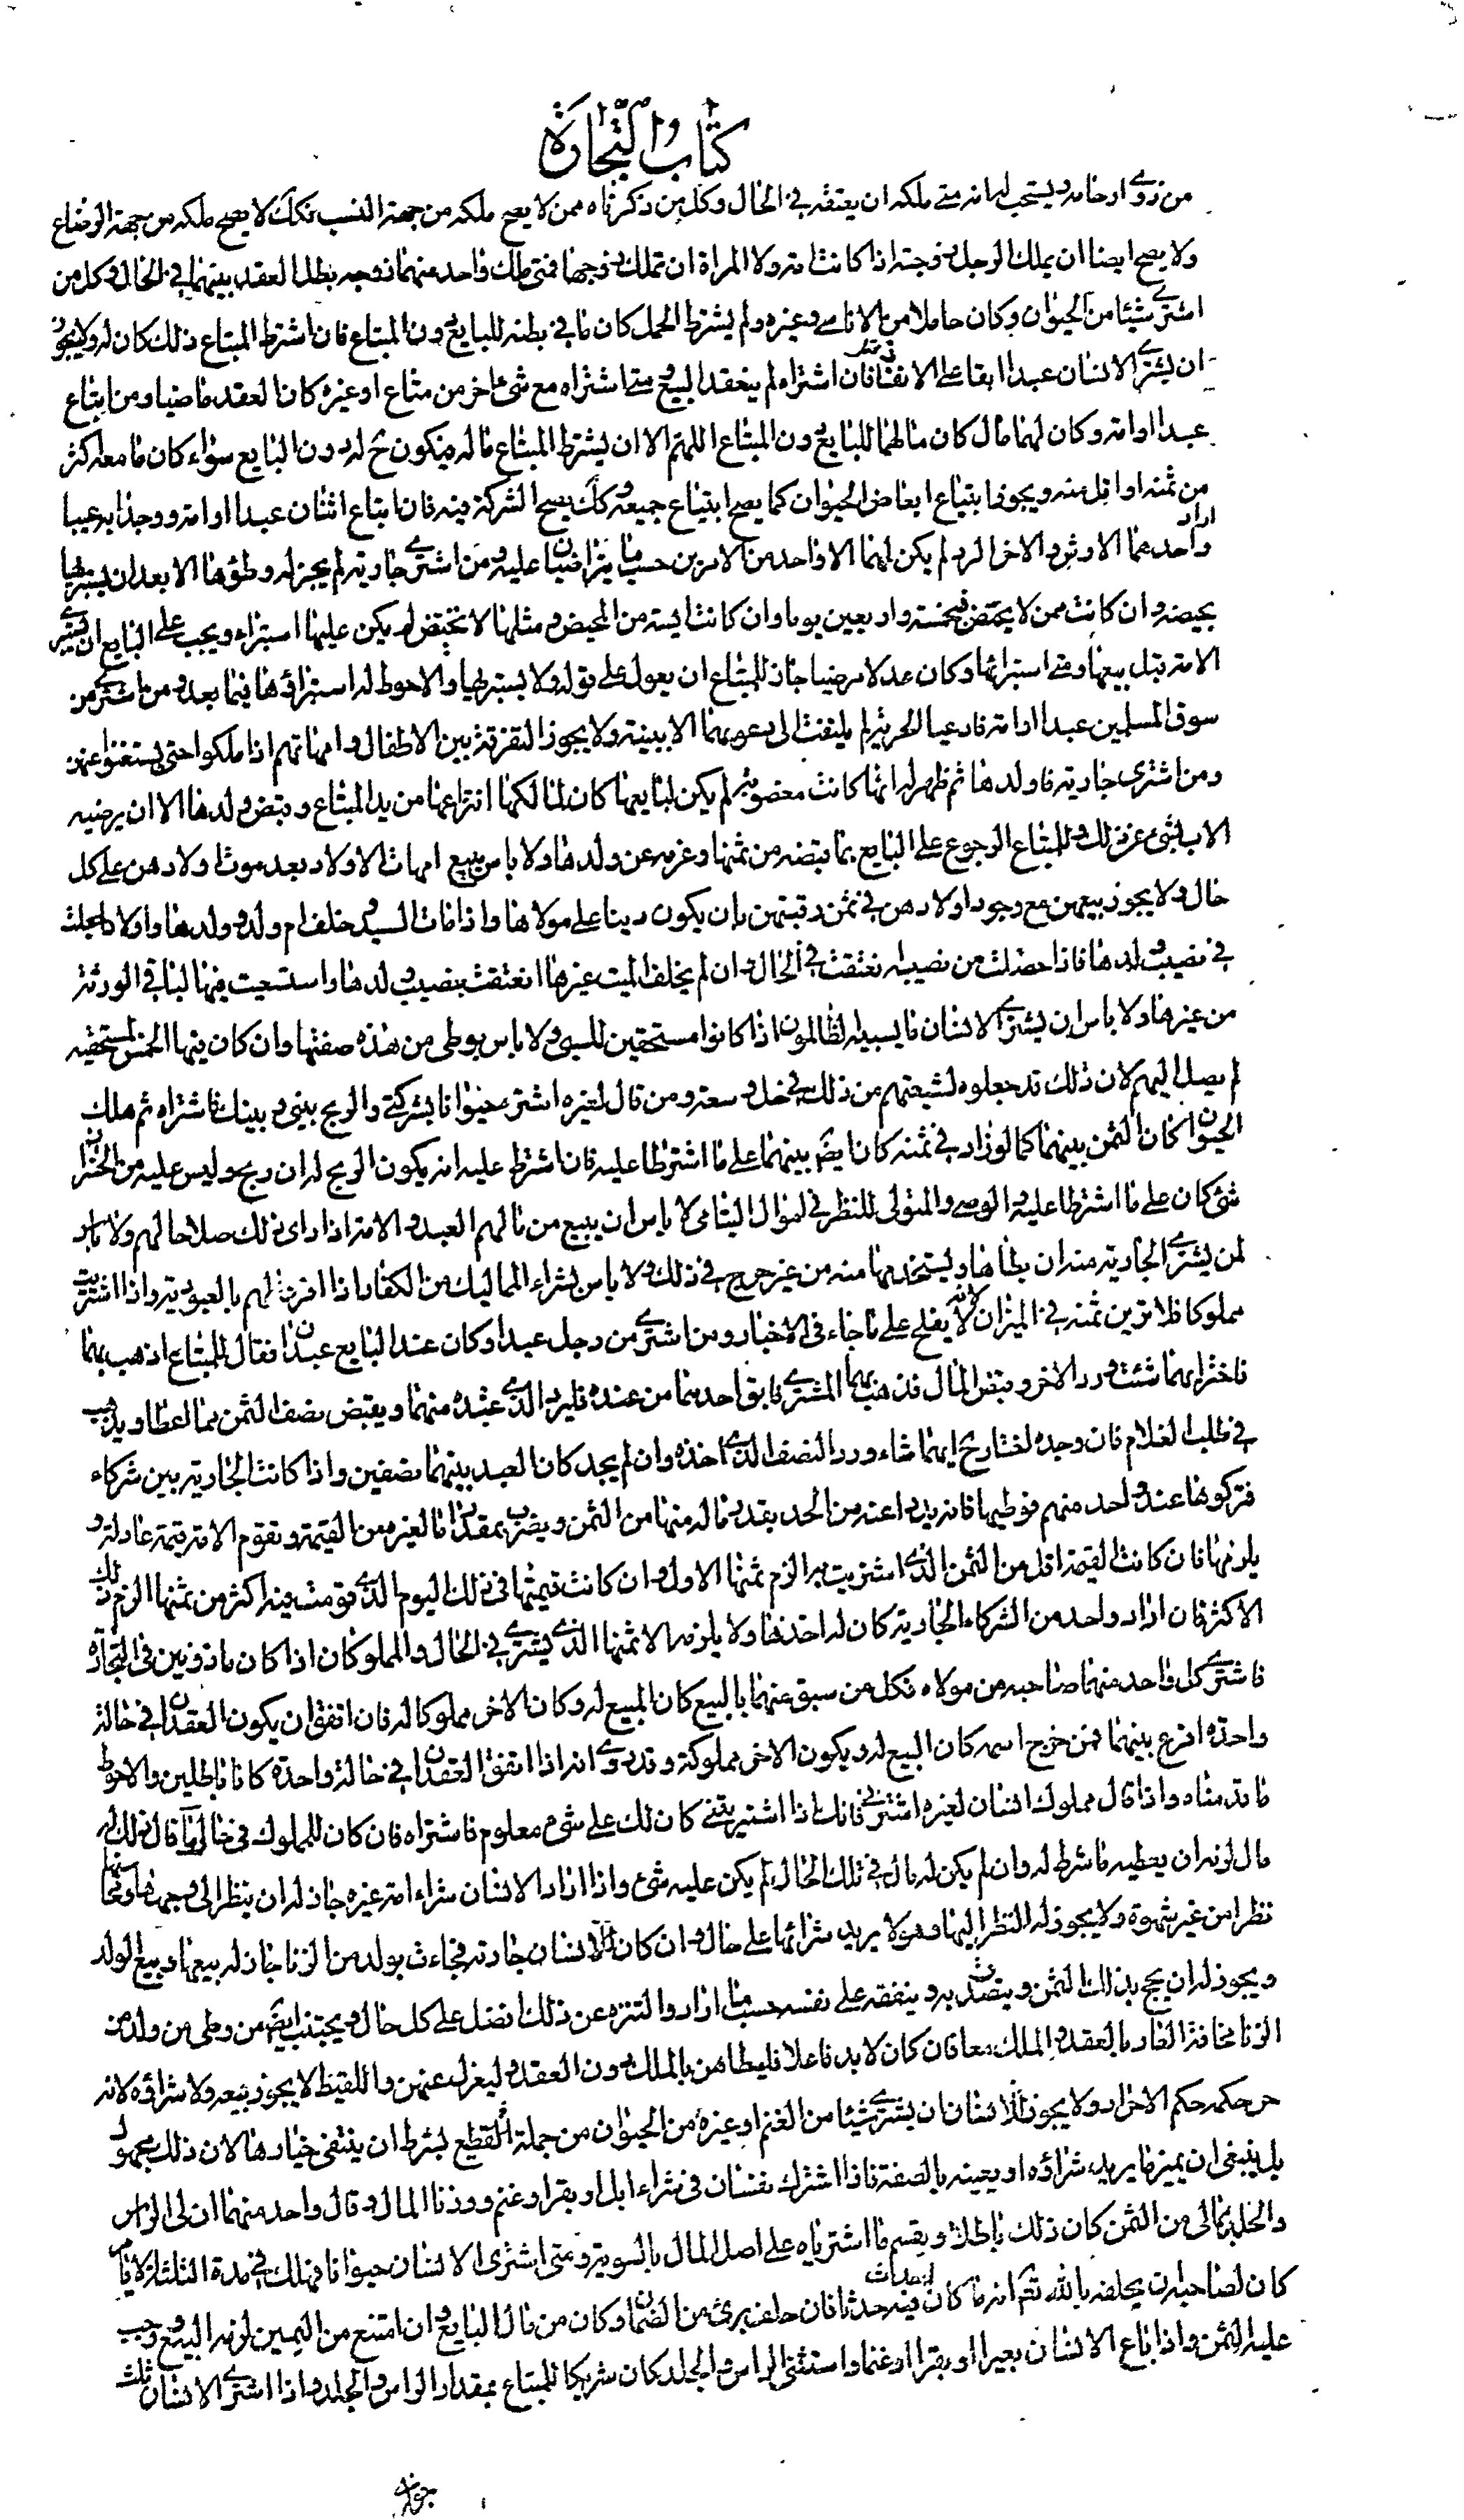 كتاب التجارة
من ذوي ارحامه ويستحب له انه متى ملكه ان يعتقه في الحال وكل من ذكرناه ممن لا يصح ملكه من جهة النسب فكك لا يصح ملكه من جهة الرضاع
ولا يصح ايضا ان يملك الرجل زوجته اذا كانت امة ولا المراة ان تملك زوجها فمتى ملك واحد منهما زوجه بطل العقد بينهما في الحال وكل من
اشترى شيئا من الحيوان وكان حاملا من الاناسي وغيره ولم يشترط الحمل كان ما في بطنه للبايع دون المبتاع فان اشترط المبتاع ذلك كان له ولا يجوز
ان يشتري الانسان عبدا ابقا على الانفراد فان اشتراه لم ينعقد البيع متى اشتراه مع شئ اخر من متاع او غيره كان العقد ماضيا ومن ابتاع
عبدا او امة وكان لهما مال كان مالهما للبايع دون المبتاع اللهم الا ان يشترط المبتاع ماله فيكون ح له دون البايع سواء كان ما معه اكثر
من ثمنه او اقل منه ويجوز ابتياع ابعاض الحيوان كما يصح ابتياع جميعه وكك يصح الشركة فيه فان ابتاع اثنان عبدا او امة ووجدا به عيبا اراد
واحد منهما الارش والاخر الرد لم يكن لهما الا واحد من الامرين حسب ما يتراضيان عليه ومن اشترى جارية لم يجز له وطؤها الا بعد ان يستبرئها
بحيضة وان كانت ممن لا يحيض فبخمسة واربعين يوما وان كانت ايسة من المحيض ومثلها لا تحيض لم يكن عليها استبراء ويجب على البايع ان يستبرئ
الامة قبل بيعها ومتى استبراها وكان عدلا مرضيا جاز للمبتاع ان يعول على قوله ولا يستبرئها والاحوط له استبراؤها فيما بعد ومن اشترى من
سوق المسلمين عبدا او امة فادعيا الحرية لم يلتفت الى دعويهما الا ببينة ولا يجوز التفرقة بين الاطفال وامهاتهم اذا ملكوا حتى يستغنوا عنهن
ومن اشترى جارية فاولدها ثم ظهر له انها كانت مغصوبة لم يكن لبايعها كان لمالكها انتزاعها من يد المبتاع وقبض ولدها الا ان يرضيه
الاب بشئ عن ذلك وللمبتاع الرجوع على البايع بما قبضه من ثمنها وغرمه عن ولدها ولا باس ببيع امهات الاولاد بعد موت اولادهن على كل
حال ولا يجوز بيعهن مع وجود اولادهن في ثمن رقبتهن بان يكون دينا على مولاها واذا مات السيد وخلف ام ولد وولدها واولادا جعلت
في نصيب ولدها فاذا حصلت من نصيبه انعتقت في الحال وان لم يخلف الميت غيرها انعتقت بنصيب ولدها واستسعيت فيها لباقي الورثة
من غيرها ولا باس ان يشتري الانسان ما يسبيه الظالمون اذا كانوا مستحقين للسبي ولا باس بوطي من هذه صفتها وان كان فيها الخمس لمستحقيه
لم يصل اليهم لان ذلك قد جعلوه لشيعتهم من ذلك في حل وسعة ومن قال لغيره اشتر حيوانا بشركتي والربح بيني وبينك فاشتراه ثم هلك
الحيوان كان الثمن بينهما كما لو زاد في ثمنه كان ايضا بينهما على ما اشترطا عليه فان اشترط عليه انه يكون الربح له ان ربح وليس عليه من الخسران
شئ كان على ما اشترطا عليه والوصي والمتولي للنظر في اموال اليتامى لا باس ان يبيع من مالهم العبد والامة اذا راى ذلك صلاحا لهم ولا باس
لمن يشتري الجارية منه ان يطاها ويستخدمها منه من غير حرج في ذلك ولا باس بشراء المماليك من الكفار اذا اقروا لهم بالعبودية واذا اشتريت
مملوكا فلا ترين ثمنه في الميزان لانه لا يفلح على ما جاء في الاخبار ومن اشترى من رجل عبدا وكان عند البايع عبدان فقال للمبتاع اذهب بهما
فاختر ايهما شئت ورد الاخر وقبض المال فذهب بهما المشتري فابق احدهما من عنده فليرد الذي عنده منهما ويقبض نصف الثمن مما اعطا ويذهب
في طلب الغلام فان وجده اختار ح ايهما شاء ورد النصف الذي اخذه وان لم يجد كان العبد بينهما نصفين واذا كانت الجارية بين شركاء
فتركوها عند واحد منهم فوطيها فانه يدرا عنه من الحد بقدر ماله منها من الثمن ويضرب بمقدار ما لغيره من القيمة وتقوم الامة قيمة عادلة و
يلزمها فان كانت القيمة اقل من الثمن الذي اشتريت به الزم ثمنها الاول وان كانت قيمتها في ذلك اليوم الذي قومت فيه اكثر من ثمنها الزم ذلك
الاكثر فان اراد واحد من الشركاء الجارية كان له اخذها ولا يلزمه الا ثمنها الذي يشترى في الحال والمملوكان اذا كانا ماذونين في التجارة
فاشترى كل واحد منهما صاحبه من مولاه فكل من سبق منهما بالبيع كان المبيع له وكان الاخر مملوكا له فان اتفق ان يكون العقدان في حالة
واحدة اقرع بينهما فمن خرج اسمه كان البيع له ويكون الاخر مملوكه وقد روي انه اذا اتفق العقدان في حالة واحدة كانا باطلين والاحوط
ما قدمناه واذا قال مملوك انسان لغيره اشترني فانك اذا اشتريتني كان لك على شئ معلوم فاشتراه فان كان للمملوك في حال ما قال ذلك له
مال لزمه ان يعطيه ما شرط له وان لم يكن له مال في تلك الحال لم يكن عليه شئ واذا اراد الانسان شراء امة غيره جاز له ان ينظر الى وجهها ومحاسنها
نظرا من غير شهوة ولا يجوز له النظر اليها وهو لا يريد شرائها على حال وان كان للانسان جارية فجاءت بولد من الزنا جاز له بيعها وبيع الولد
ويجوز له ان يحج بذلك الثمن ويتصدق به وينفقه على نفسه حسب ما اراد والتنزه عن ذلك افضل على كل حال ويجتنب ايضا من وطي من ولد من
الزنا مخافة العار بالعقد والملك معا فان كان لا بد فاعلا فليطاهن بالملك دون العقد وليعزل عنهن واللقيط لا يجوز بيعه ولا شراؤه لانه
حر حكمه حكم الاحرار ولا يجوز للانسان ان يشتري شيئا من الغنم او غيره من الحيوان من جملة القطيع بشرط ان ينتقى خيارها لان ذلك مجهول
بل ينبغي ان يميز ما يريد شراؤه او يعينه بالصفة فاذا اشترك نفسان في شراء ابل او بقر او غنم ووزنا المال وقال واحد منهما ان لي الراس
والجلد بمالي من الثمن كان ذلك باطلا ويقسم ما اشترياه على اصل المال بالسوية ومتى اشترى الانسان حيوانا فهلك في مدة الثلثة الايام
كان لصاحبه ان يحلفه بالله تعم انه ما كان احداث فيه حدثا فان حلف برئ من الضمان وكان من مال البايع وان امتنع من اليمين لزمه البيع ووجب
عليه الثمن واذا باع الانسان بعيرا او بقرا او غنما واستثنى الراس والجلد كان شريكا للمبتاع بمقدار الراس والجلد واذا اشترى الانسان ثلث